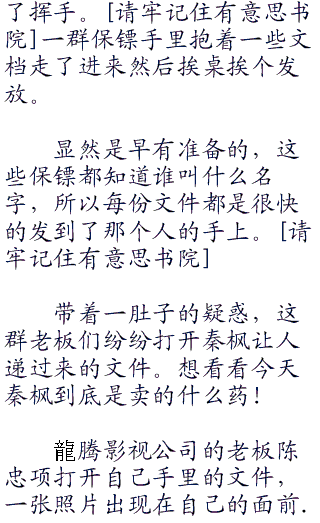 了挥手。[请牢记住有意思书
院]一群保镖手里抱着一些文
档走了进来然后挨桌挨个发
放。
显然是早有准备的，这
些保镖都知道谁叫什么名
字，所以每份文件都是很快
的发到了那个人的手上。[请
牢记住有意思书院]
带着一肚子的疑惑，这
群老板们纷纷打开秦枫让人
递过来的文件。想看看今天
秦枫到底是卖的什么药！
龍腾影视公司的老板陈
忠项打开自己手里的文件，
一张照片出现在自己的面前.